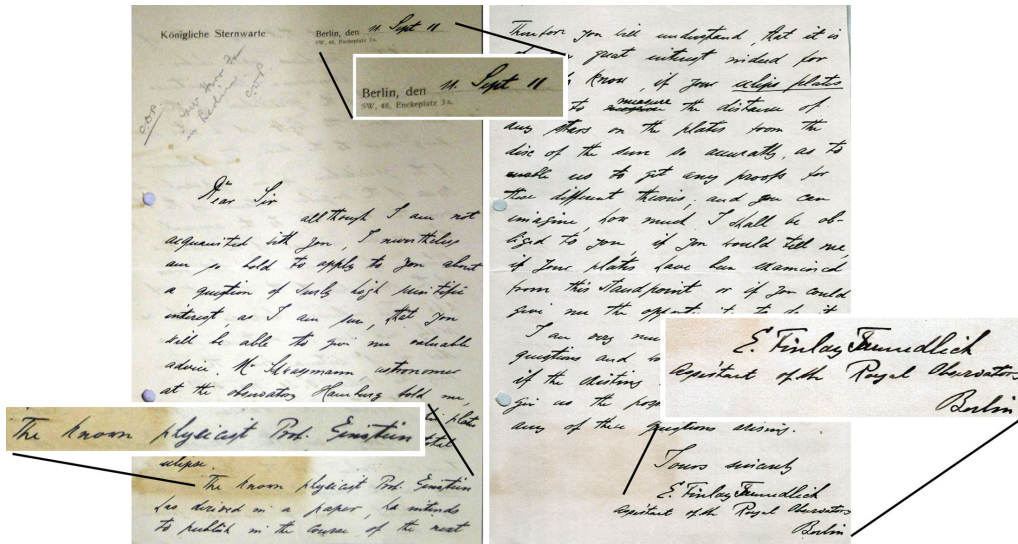 Königliche Sternwarte
Berlin, den 11. Sept 11
SW. 48, Enckeplatz 3A.
Berlin, den 11. Sept 11
SW. 48, Enckeplatz 3A.
in Berlin
C.D.P.
Dear Sir
allthough I am not
acquainted with you, I nevertheless
am so bold to apply to you about
a question of surely high scientific
interest as I am sure, that you
will be able to give me valuable
advice. Mr astronomer
at the observatory Hamburg told me,
plate
The known physicist Prof. Einstein
that
eclipse.
The known physicist Prof. Einstein
has derived in a paper, he intends
to publish in the course of the next
Therefore you will understand, that it is
great interest indeed for
know, if your eclips plates
to measure the distance of
any stars on the plates from the
disc of the sun so accuratly, as to
enable us to get any proofs for
these different theories; and you can
imagine how much I shall be ob-
liged to you, if you would tell me,
if your plates have been examined
from this standpoint or if you could
give me the to do it
I am very
questions and
if the existing
give us the
any of these questions arising.
E. Finlay Freundlich
assistant of the Royal Observatory
Berlin
Yours sincerely
E. Finlay Freundlich
assistant of the Royal Observatory
Berlin